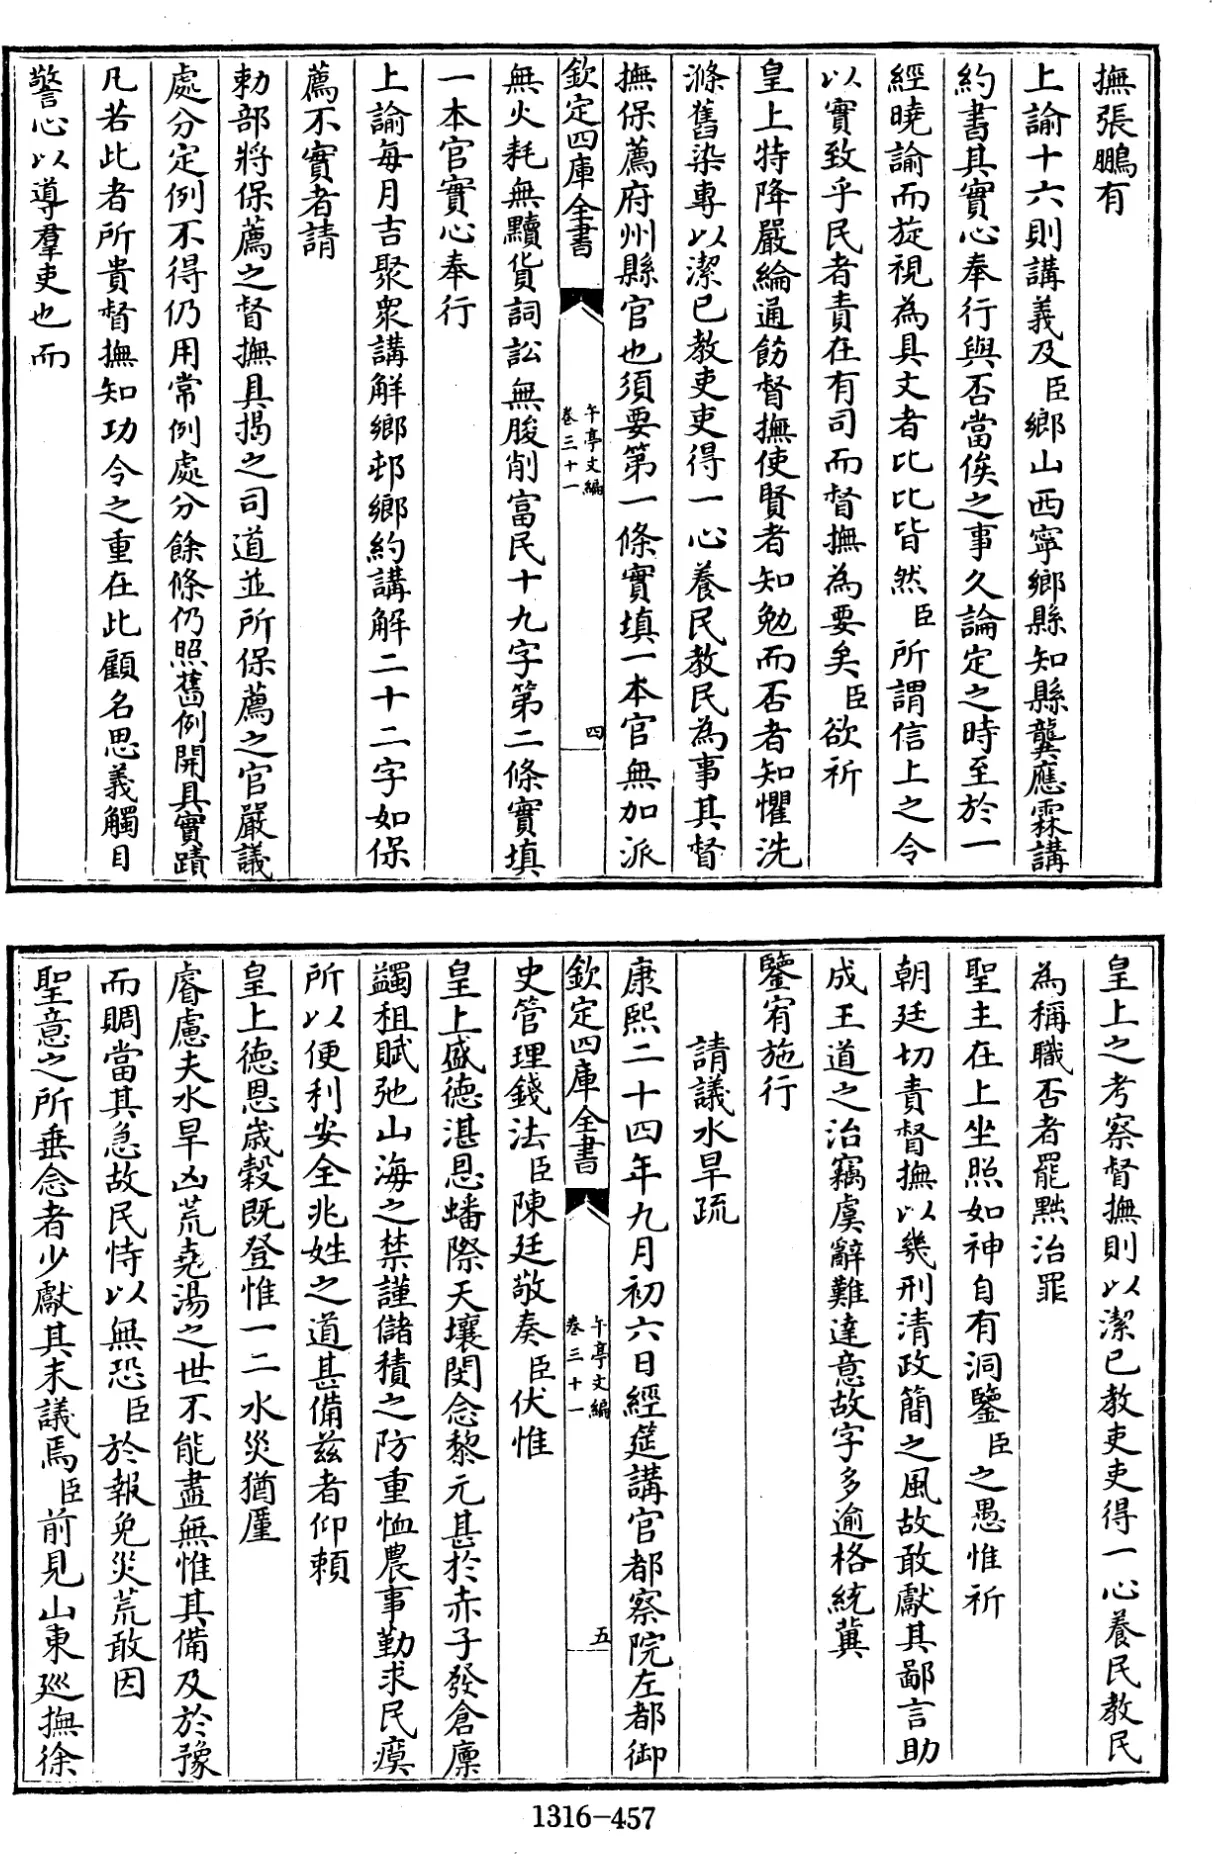 撫張鵬有
上諭十六則講義及臣鄉山西寧鄉縣知縣龔應霖講
約書其實心奉行與否當俟之事久論定之時至於一
經曉諭而旋視為具文者比比皆然臣所謂信上之令
以實致乎民者責在有司而督撫為要矣臣欲祈
皇上特降嚴綸通飭督撫使賢者知勉而否者知懼洗
滌舊染專以潔已教吏吏得一心養民教民為事其督
撫保薦府州縣官也須要第一條實填一本官無加派
欽定四庫全書
午亭文編
卷三十一
四
無火耗無黷貨詞訟無朘削富民十九字第二條實填
一本官實心奉行
上諭每月吉聚衆講解鄉邨鄉約講解二十二字如保
薦不實者請
勅部將保薦之督撫具揭之司道並所保薦之官嚴議
處分定例不得仍用常例處分餘條仍照舊例開具實蹟
凡若此者所貴督撫知功令之重在此顧名思義觸目
警心以導羣吏也而
皇上之考察督撫則以潔已教吏吏得一心養民教民
為稱職否者罷黜治罪
聖主在上坐照如神自有洞鑒臣之愚惟祈
朝廷切責督撫以幾刑清政簡之風故敢獻其鄙言助
成王道之治竊虞辭難達意故字多逾格統冀
鑒宥施行
請議水旱疏
康熙二十四年九月初六日經筵講官都察院左都御
欽定四庫全書
午亭文編
卷三十一
五
史管理錢法臣陳廷敬奏臣伏惟
皇上盛德湛恩蟠際天壤閔念黎元甚於赤子發倉廪
蠲租賦弛山海之禁謹儲積之防重恤農事勤求民瘼
所以便利安全兆姓之道甚備兹者仰頼
皇上德恩歲穀既登惟一二水災猶厪
睿慮夫水旱凶荒堯湯之世不能盡無惟其備及於豫
而賙當其急故民恃以無恐臣於報免災荒敢因
聖意之所垂念者少獻其末議焉臣前見山東廵撫徐
1316-457